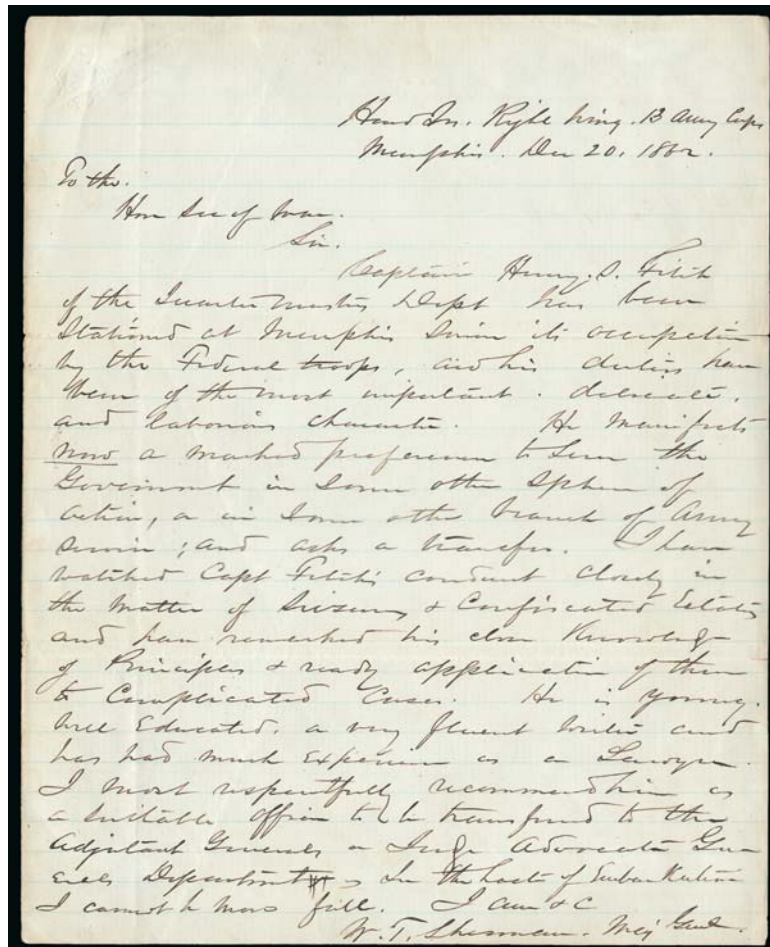 Head Qrs. Right Wing. 13 Army Corps
Memphis. Dec 20. 1862.
To the.
Hon Sec of War.
Sir.
Captain Henry. S. Fitch
of the Quarter Masters Dept has been
Stationed at Memphis Since its occupation
by the Federal troops, and his duties have
been of the most important. delicate.
and laborious character. He Manifests
now a marked preference to serve the
Government in Some other Sphere of
action, or in Some other branch of Army
service; and asks a transfer. I have
watched Capt Fitch's conduct closely in
the matter of Seizures & Confiscated Estates
and have remarked his close Knowledge
of Principles & ready application of them
to Complicated Cases. He is young.
well Educated. a very fluent writer and
has had much Experience as a Lawyer.
I most respectfully recommend him as
a Suitable officer to be transferred to the
Adjutant Generals or Judge Advocate Gen
erals Department. In the haste of Embarkation
I cannot be more full. I am &c
W. T. Sherman. Maj Genl.